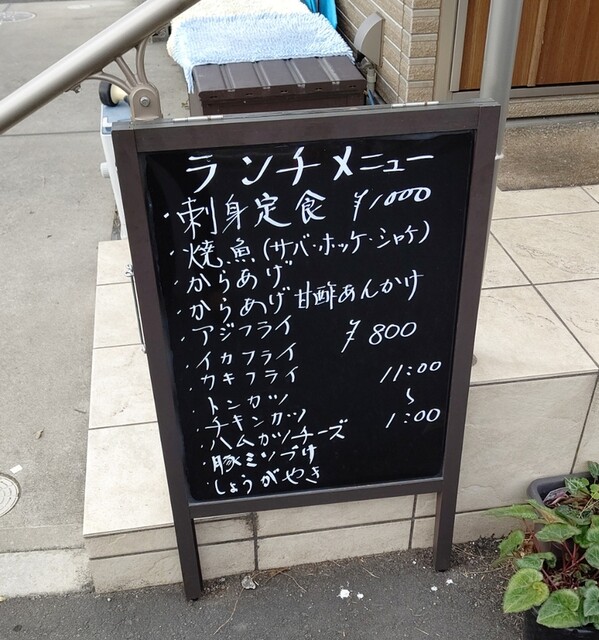 ランチメニュー
・刺身定食 ¥1000
・焼魚(サバ・ホッケ・シャケ)
・からあげ
・からあげ甘酢あんかけ
・アジフライ
・イカフライ ¥800
・カキフライ
・トンカツ 11:00
・チキンカツ 〜
・ハムカツチーズ 1:00
・豚ミソづけ
・しょうがやき